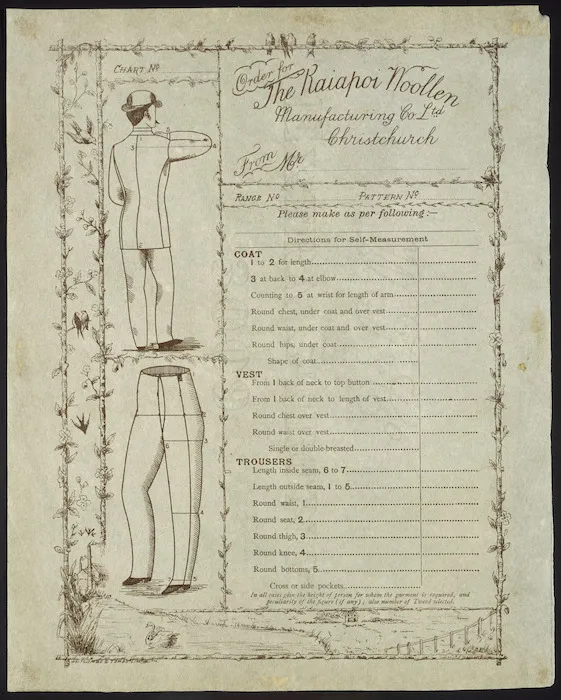 CHART No
Order for
The Kaiapoi Woollen
Manufacturing Co Ltd
Christchurch
From Mr
RANGE No PATTERN No
Please make as per following:—
Directions for Self-Measurement
COAT
1 to 2 for length
3 at back to 4 at elbow
Counting to 5 at wrist for length of arm
Round chest, under coat and over vest
Round waist, under coat and over vest
Round hips, under coat
Shape of coat
VEST
From 1 back of neck to top button
From 1 back of neck to length of vest
Round chest over vest
Round waist over vest
Single or double-breasted
TROUSERS
Length inside seam, 6 to 7
Length outside seam, 1 to 5
Round waist, 1
Round seat, 2
Round thigh, 3
Round knee, 4
Round bottoms, 5
Cross or side pockets
In all cases give the height of person for whom the garment is required, and
peculiarity of the figure (if any); also number of Tweed selected.